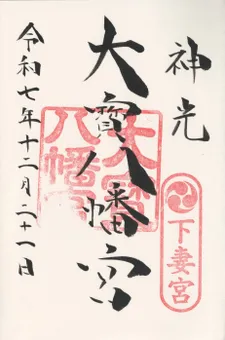 神光
下妻宮
大寳八幡宮
八幡
令和七年十二月二十一日